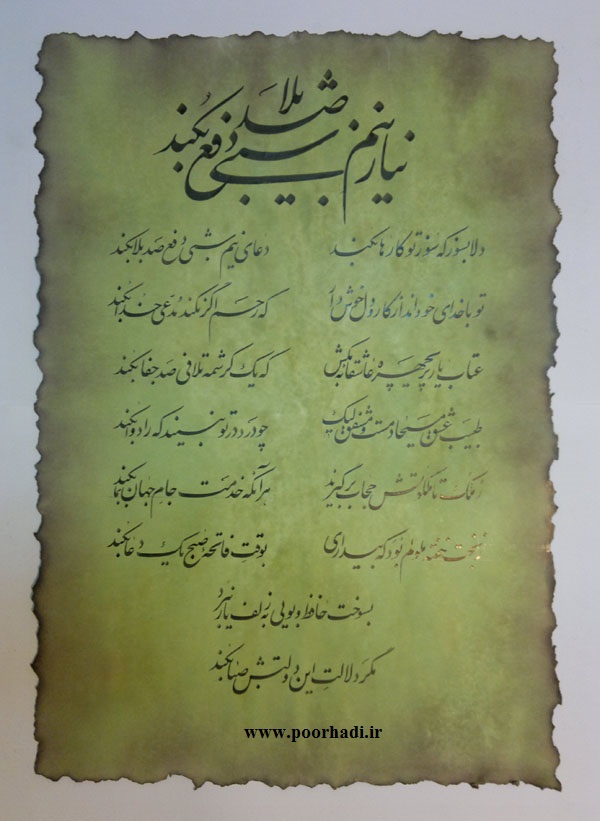 نیاز نیم شبی دفع صد بلا بکند
دلا بسوز که سوز تو کارها بکند دعای نیم شبی دفع صد بلا بکند
تو با خدای خود انداز کار و دل خوش دار که رحم اگر نکند مدعی خدا بکند
عتاب یار پریچهره عاشقانه بکش که یک کرشمه تلافی صد جفا بکند
طبیب عشق مسیحا دمست و مشفق لیک چو درد در تو نبیند که را دوا بکند
ز ملک تا ملکوتش حجاب برگیرند هر آنکه خدمت جام جهان نما بکند
ز بخت خفته ملولم بود که بیداری بوقت فاتحه صبح یک دعا بکند
بسوخت حافظ و بویی به زلف یار نبرد
مگر دلالت این دولتش صبا بکند
www.poorhadi.ir